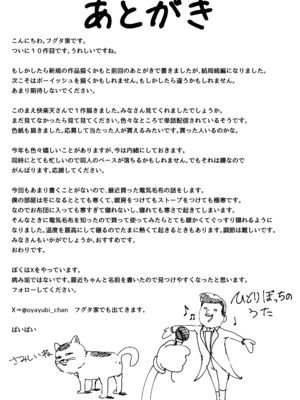 あとがき
こんにちわ、フグタ家です。
ついに１０作目です。うれしいですね。
もしかしたら新規の作品描くかもと前回のあとがきで書きましたが、結局続編になりました。
次こそはボーイッシュを描くかもしれません。もしかしたら違うかもしれません。
あまり期待しないでください。
このまえ快楽天さんで１作描きました。みなさん見てくれましたでしょうか。
まだ見てなかったら見て見てください。色々なところで単話配信されているそうです。
色紙も描きました。応募して当たった人が貰えるみたいです。貰った人いるのかな。
今年も色々嬉しいことがありますが、今は内緒にしておきます。
同時にとても忙しいので同人のペースが落ちるかもしれません。でもそれは嫌なので
がんばります。応援してください。
今回もあまり書くことがないので、最近買った電気毛布の話をします。
僕の部屋は冬になるととても寒くて、暖房をつけてもストーブをつけても極寒です。
なのでお布団に入っても寒すぎて寝れないし、寝れても寒さで起きてしまいます。
そんなときに電気毛布を知ったので買って使ってみたらとても暖かくてぐっすり寝れるように
なりました。温度を最高にして寝るのでたまに熱くて起きるときもあります。調節は難しいです。
みなさんもいかがでしょうか。おすすめです。
おわりです。
ぼくはXをやっています。
病み垢ではないです。最近ちゃんと名前を書いたので見つけやすくなったと思います。
フォローしてください。
X→@oyayubi_chan　フグタ家でも出てきます。
ばいばい
ひとりぼっちの
うた
さみしいね